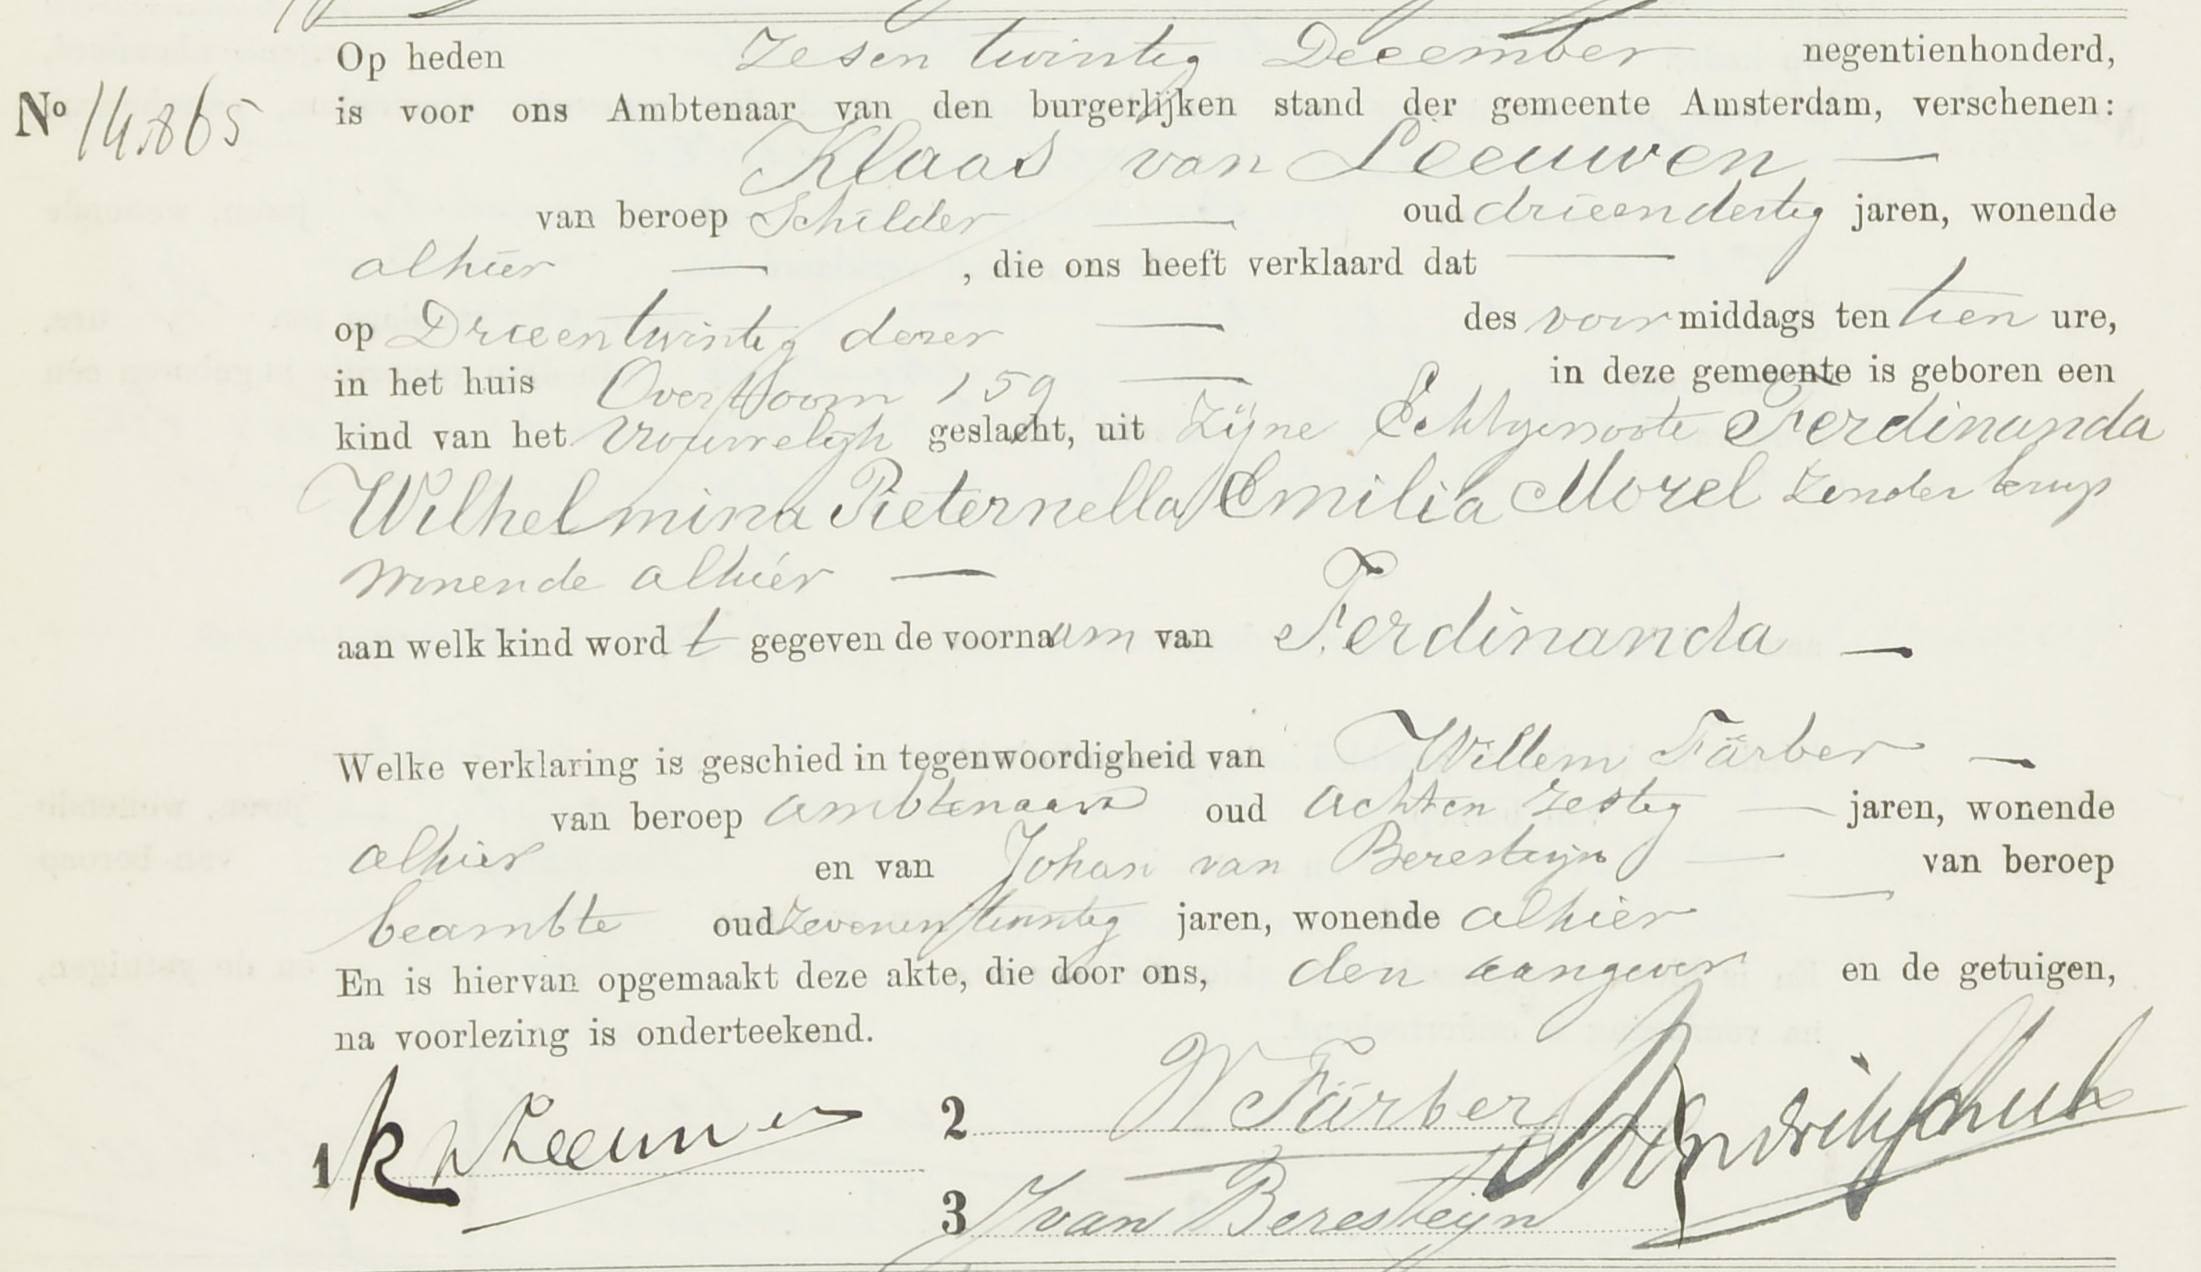 Op heden zesen twintig December negentienhonderd,
No 14.865
is voor ons Ambtenaar van den burgerlijken stand der gemeente Amsterdam, verschenen:
Klaas van Leeuwen
van beroep Schilder oud drieendertig jaren, wonende
alhier , die ons heeft verklaard dat
op Drieentwintig dezer des voor middags ten tien ure,
in het huis Overtoom 159 in deze gemeente is geboren een
kind van het Vrouwelijk geslacht, uit Zijne Echtgenoote Ferdinanda
Wilhelmina Pieternella Emilia Morel zonder beroep
wonende alhier
aan welk kind word t gegeven de voornaam van Ferdinanda
Welke verklaring is geschied in tegenwoordigheid van Willem Färber
van beroep ambtenaar oud achten zestig jaren, wonende
alhier en van Johan van Beresteijn van beroep
beambte oud zevenentwintig jaren, wonende alhier
En is hiervan opgemaakt deze akte, die door ons, den aangever en de getuigen,
na voorlezing is onderteekend.
1 K v Leeuwen 2 W Färber
3 J van Beresteijn